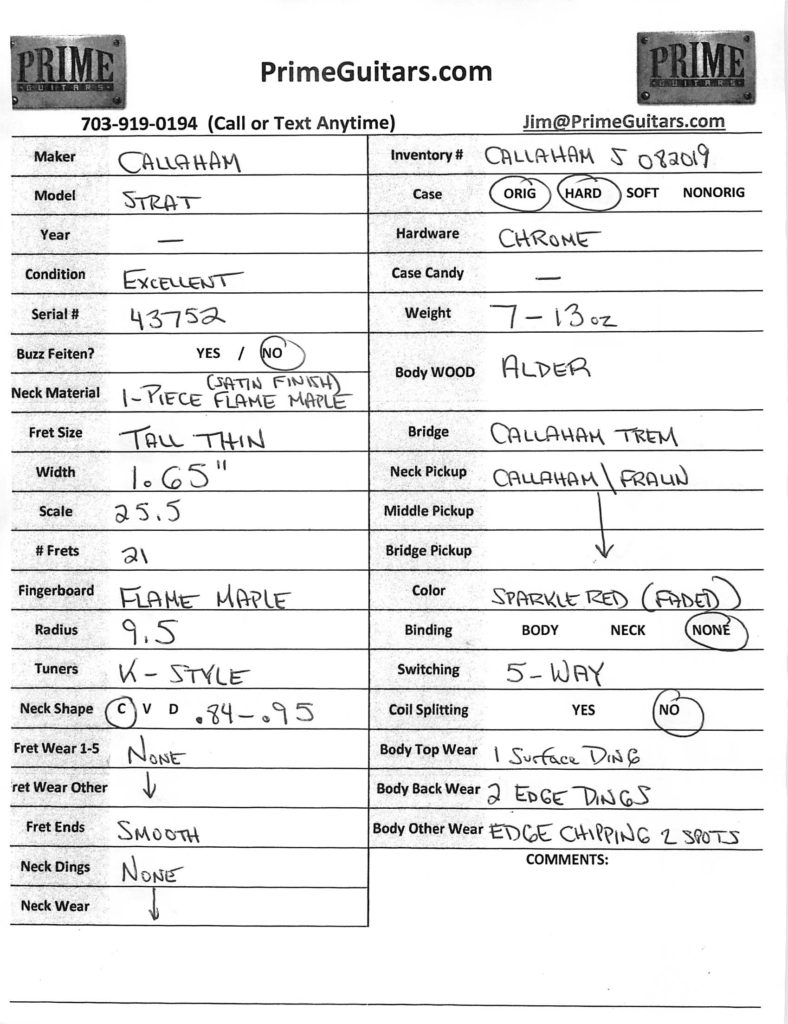 PRIME
GUITARS
PrimeGuitars.com
PRIME
GUITARS
703-919-0194 (Call or Text Anytime)
Jim@PrimeGuitars.com
Maker CALLAHAM
Model STRAT
Year —
Condition EXCELLENT
Serial # 43752
Buzz Feiten? YES / NO
Neck Material 1-PIECE FLAME MAPLE (SATIN FINISH)
Fret Size TALL THIN
Width 1.65"
Scale 25.5
# Frets 21
Fingerboard FLAME MAPLE
Radius 9.5
Tuners K-STYLE
Neck Shape C V D .84-.95
Fret Wear 1-5 NONE
ret Wear Other ↓
Fret Ends SMOOTH
Neck Dings NONE
Neck Wear ↓
Inventory # CALLAHAM S 082019
Case ORIG HARD SOFT NONORIG
Hardware CHROME
Case Candy —
Weight 7-13oz
Body WOOD ALDER
Bridge CALLAHAM TREM
Neck Pickup CALLAHAM\FRALIN
Middle Pickup
Bridge Pickup ↓
Color SPARKLE RED (FADED)
Binding BODY NECK NONE
Switching 5-WAY
Coil Splitting YES NO
Body Top Wear 1 Surface DING
Body Back Wear 2 EDGE DINGS
Body Other Wear EDGE CHIPPING 2 SPOTS
COMMENTS: